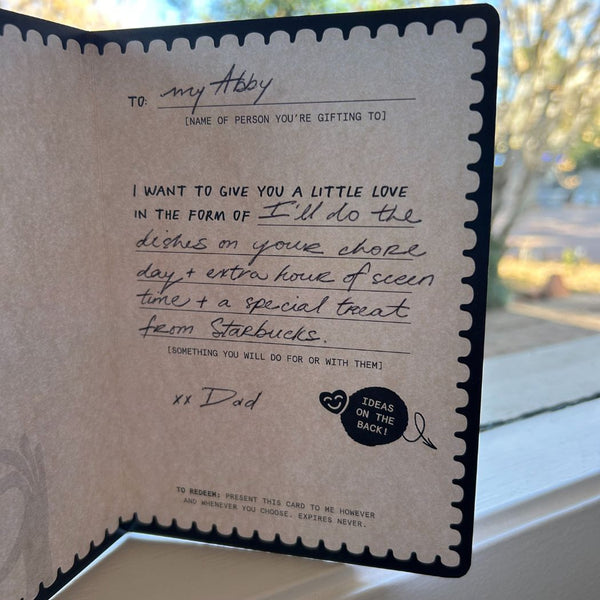 TO: my Abby
[NAME OF PERSON YOU'RE GIFTING TO]
I WANT TO GIVE YOU A LITTLE LOVE
IN THE FORM OF I'll do the
dishes on your chore
day + extra hour of sceen
time + a special treat
from Starbucks.
[SOMETHING YOU WILL DO FOR OR WITH THEM]
xx Dad
IDEAS
ON THE
BACK!
TO REDEEM: PRESENT THIS CARD TO ME HOWEVER
AND WHENEVER YOU CHOOSE. EXPIRES NEVER.